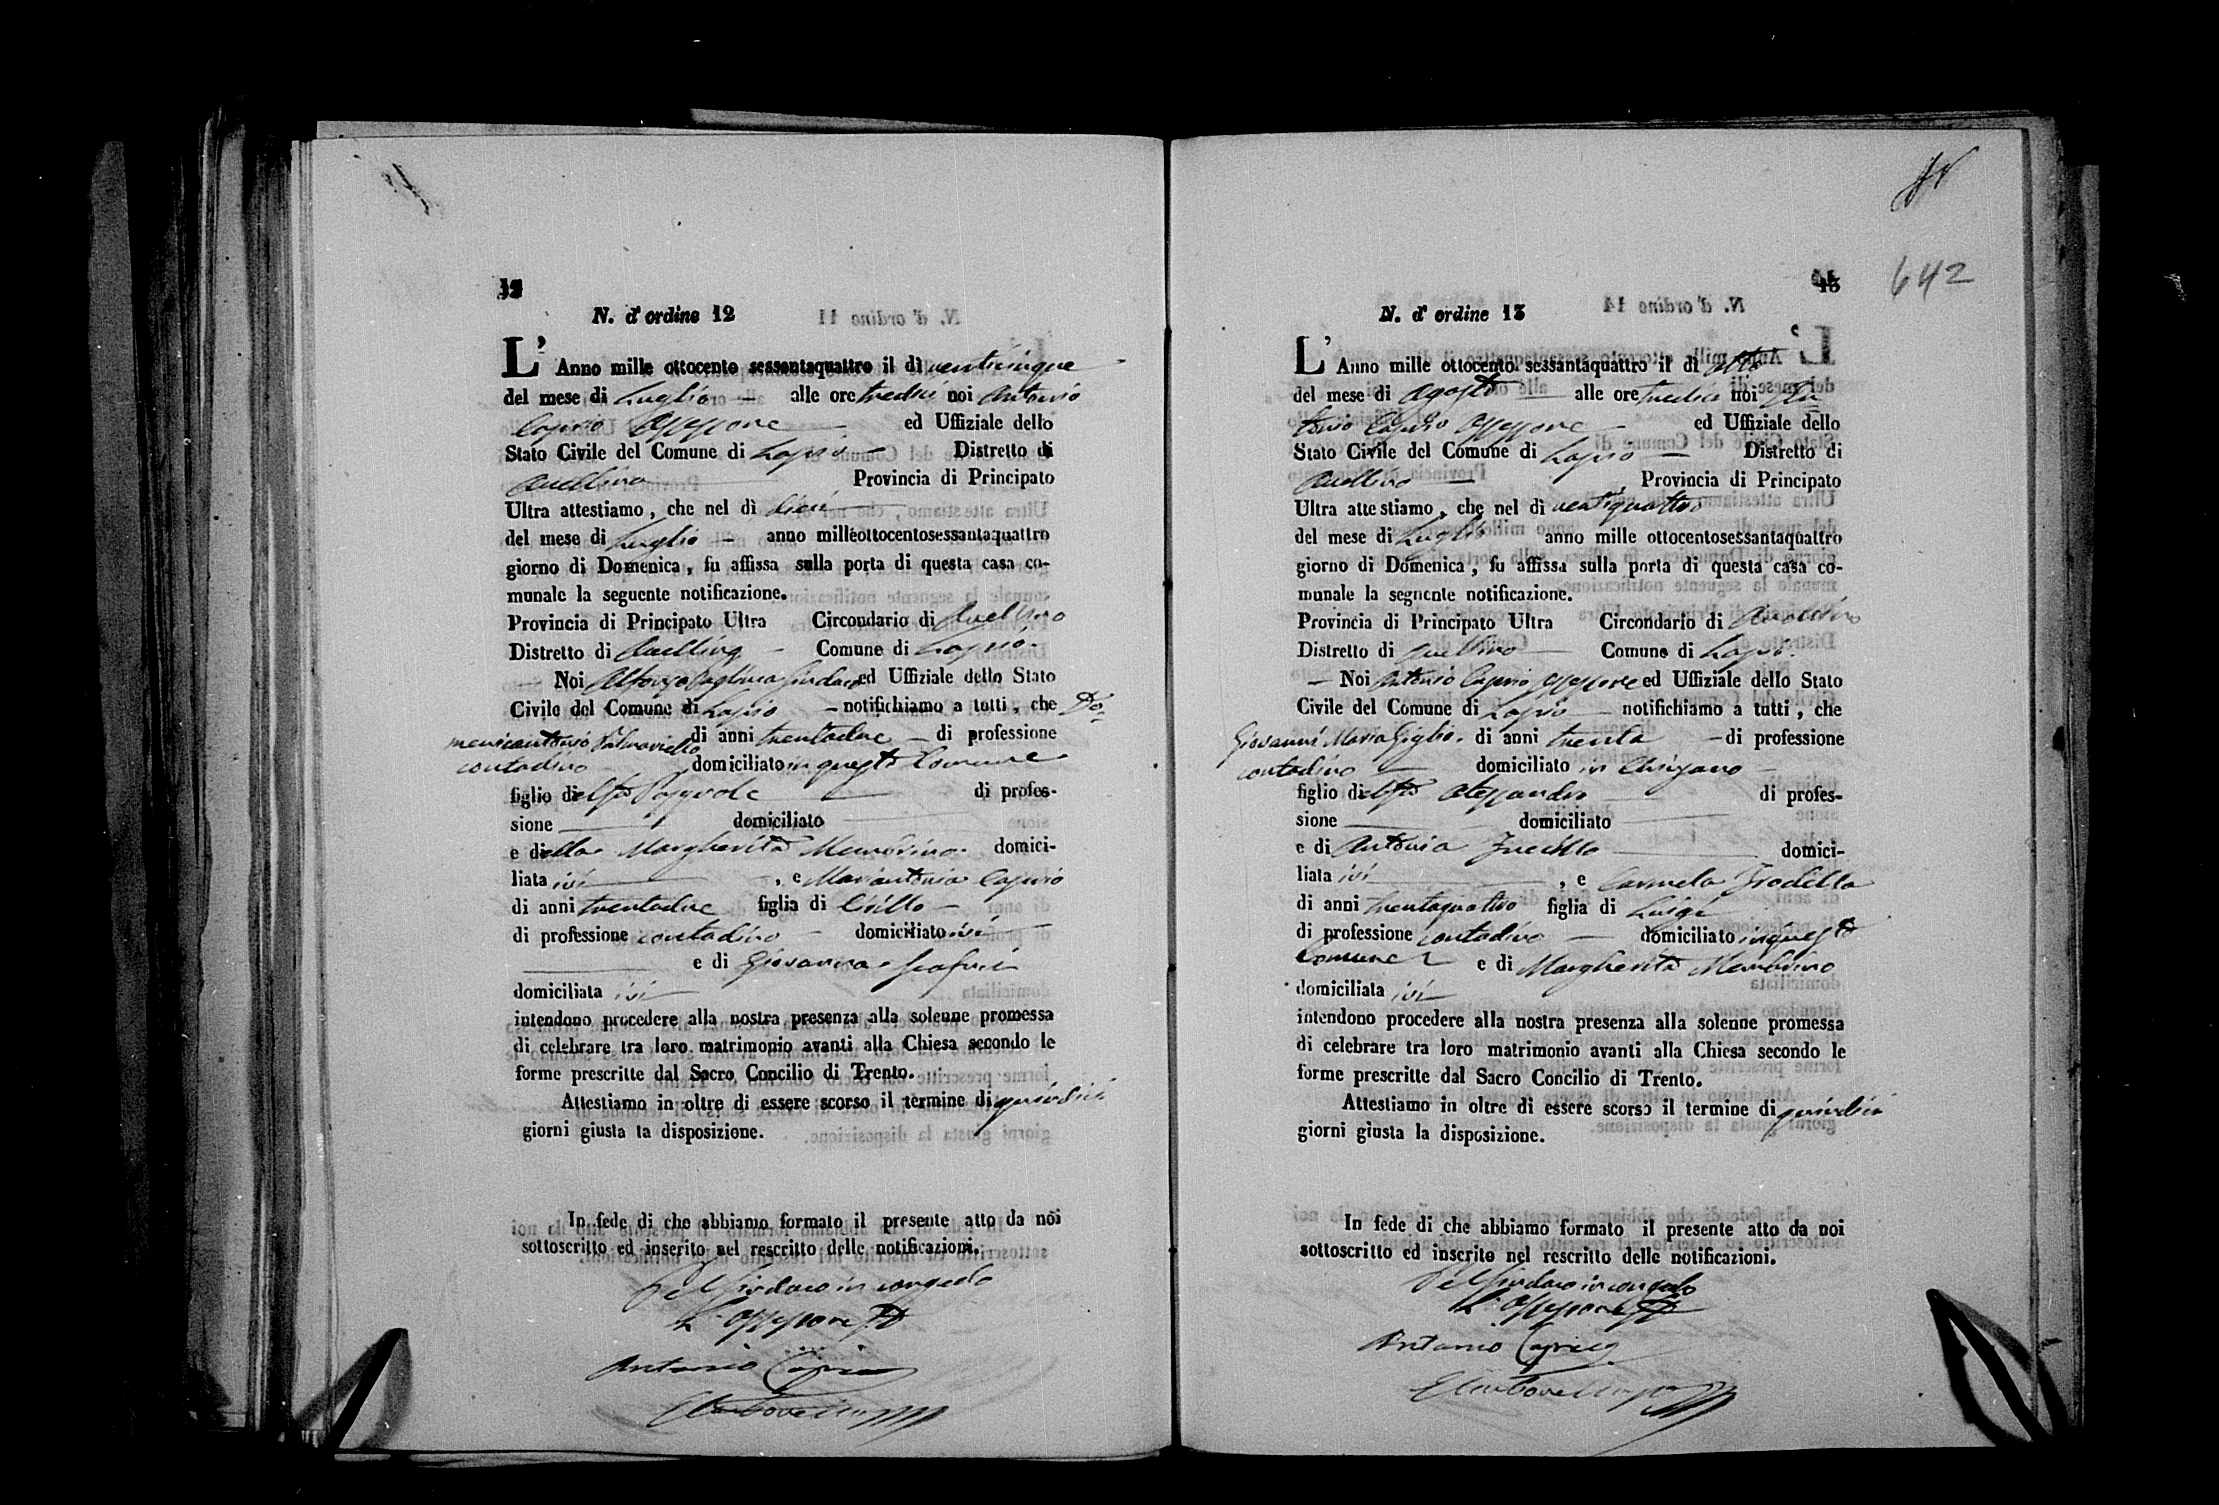 12
N. d'ordine 12
L'Anno mille ottocento sessantaquattro il dì venticinque
del mese di Luglio — alle ore tredici noi Antonio
Caprio Assessore — ed Uffiziale dello
Stato Civile del Comune di Lapio — Distretto di
Avellino Provincia di Principato
Ultra attestiamo, che nel dì dieci
del mese di Luglio — anno milleottocentosessantaquattro
giorno di Domenica, fu affissa sulla porta di questa casa co-
munale la seguente notificazione.
Provincia di Principato Ultra Circondario di Avellino
Distretto di Avellino — Comune di Lapio.
— Noi Alfonso Sindaco ed Uffiziale dello Stato
Civile del Comune di Lapio — notifichiamo a tutti, che Do=
menicantonio Palmariello di anni trentadue — di professione
contadino — domiciliato in questo Comune
figlio del fu Pasquale — di profes-
sione — domiciliato —
e della Margherita domici-
liata ivi —, e Mariantonia Caprio
di anni trentadue figlia di Cirillo —
di professione contadino — domiciliato ivi —
— e di Giovanna
domiciliata ivi
intendono procedere alla nostra presenza alla solenne promessa
di celebrare tra loro matrimonio avanti alla Chiesa secondo le
forme prescritte dal Sacro Concilio di Trento.
Attestiamo in oltre di essere scorso il termine di quindici
giorni giusta la disposizione.
In fede di che abbiamo formato il presente atto da noi
sottoscritto ed inserito nel rescritto delle notificazioni.
Pel Sindaco in congedo
L'Assessore
Antonio Caprio
13
642
N. d'ordine 13
L'Anno mille ottocento sessantaquattro il dì otto
del mese di Agosto — alle ore tredici noi An
tonio Caprio Assessore — ed Uffiziale dello
Stato Civile del Comune di Lapio — Distretto di
Avellino — Provincia di Principato
Ultra attestiamo, che nel dì ventiquattro
del mese di Luglio anno mille ottocentosessantaquattro
giorno di Domenica, fu affissa sulla porta di questa casa co-
munale la seguente notificazione.
Provincia di Principato Ultra Circondario di Avellino
Distretto di Avellino — Comune di Lapio.
— Noi Antonio Caprio Assessore ed Uffiziale dello Stato
Civile del Comune di Lapio — notifichiamo a tutti, che
Giovanni Maria Giglio. di anni trenta — di professione
contadino — domiciliato in
figlio del fu Alessandro — di profes-
sione — domiciliato —
e di Antonia — domici-
liata ivi —, e Carmela
di anni trentaquattro figlia di Luigi
di professione contadino — domiciliato in questo
Comune e di Margherita
domiciliata ivi
intendono procedere alla nostra presenza alla solenne promessa
di celebrare tra loro matrimonio avanti alla Chiesa secondo le
forme prescritte dal Sacro Concilio di Trento.
Attestiamo in oltre di essere scorso il termine di quindici
giorni giusta la disposizione.
In fede di che abbiamo formato il presente atto da noi
sottoscritto ed inserito nel rescritto delle notificazioni.
Pel Sindaco in congedo
L'Assessore
Antonio Caprio